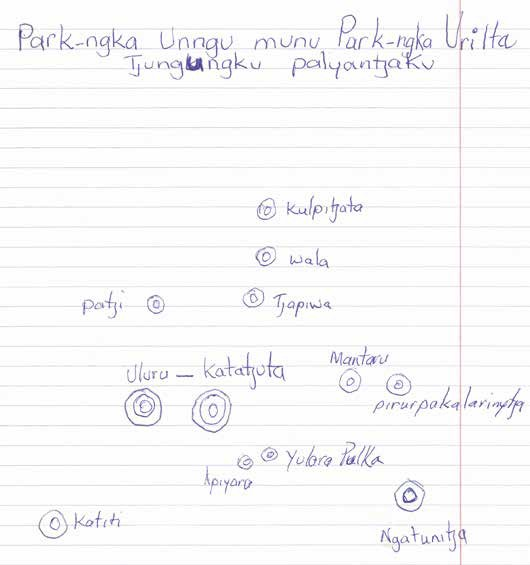 Park-ngka Unngu munu Park-ngka Urilta
Tjungungku palyantjaku
Kulpitjata
Wala
Patji
Tjapiwa
Uluru — Katatjuta
Mantaru
pirurpakalarintja
Yulara Pulka
Apiyaru
Katiti
Ngatunitja